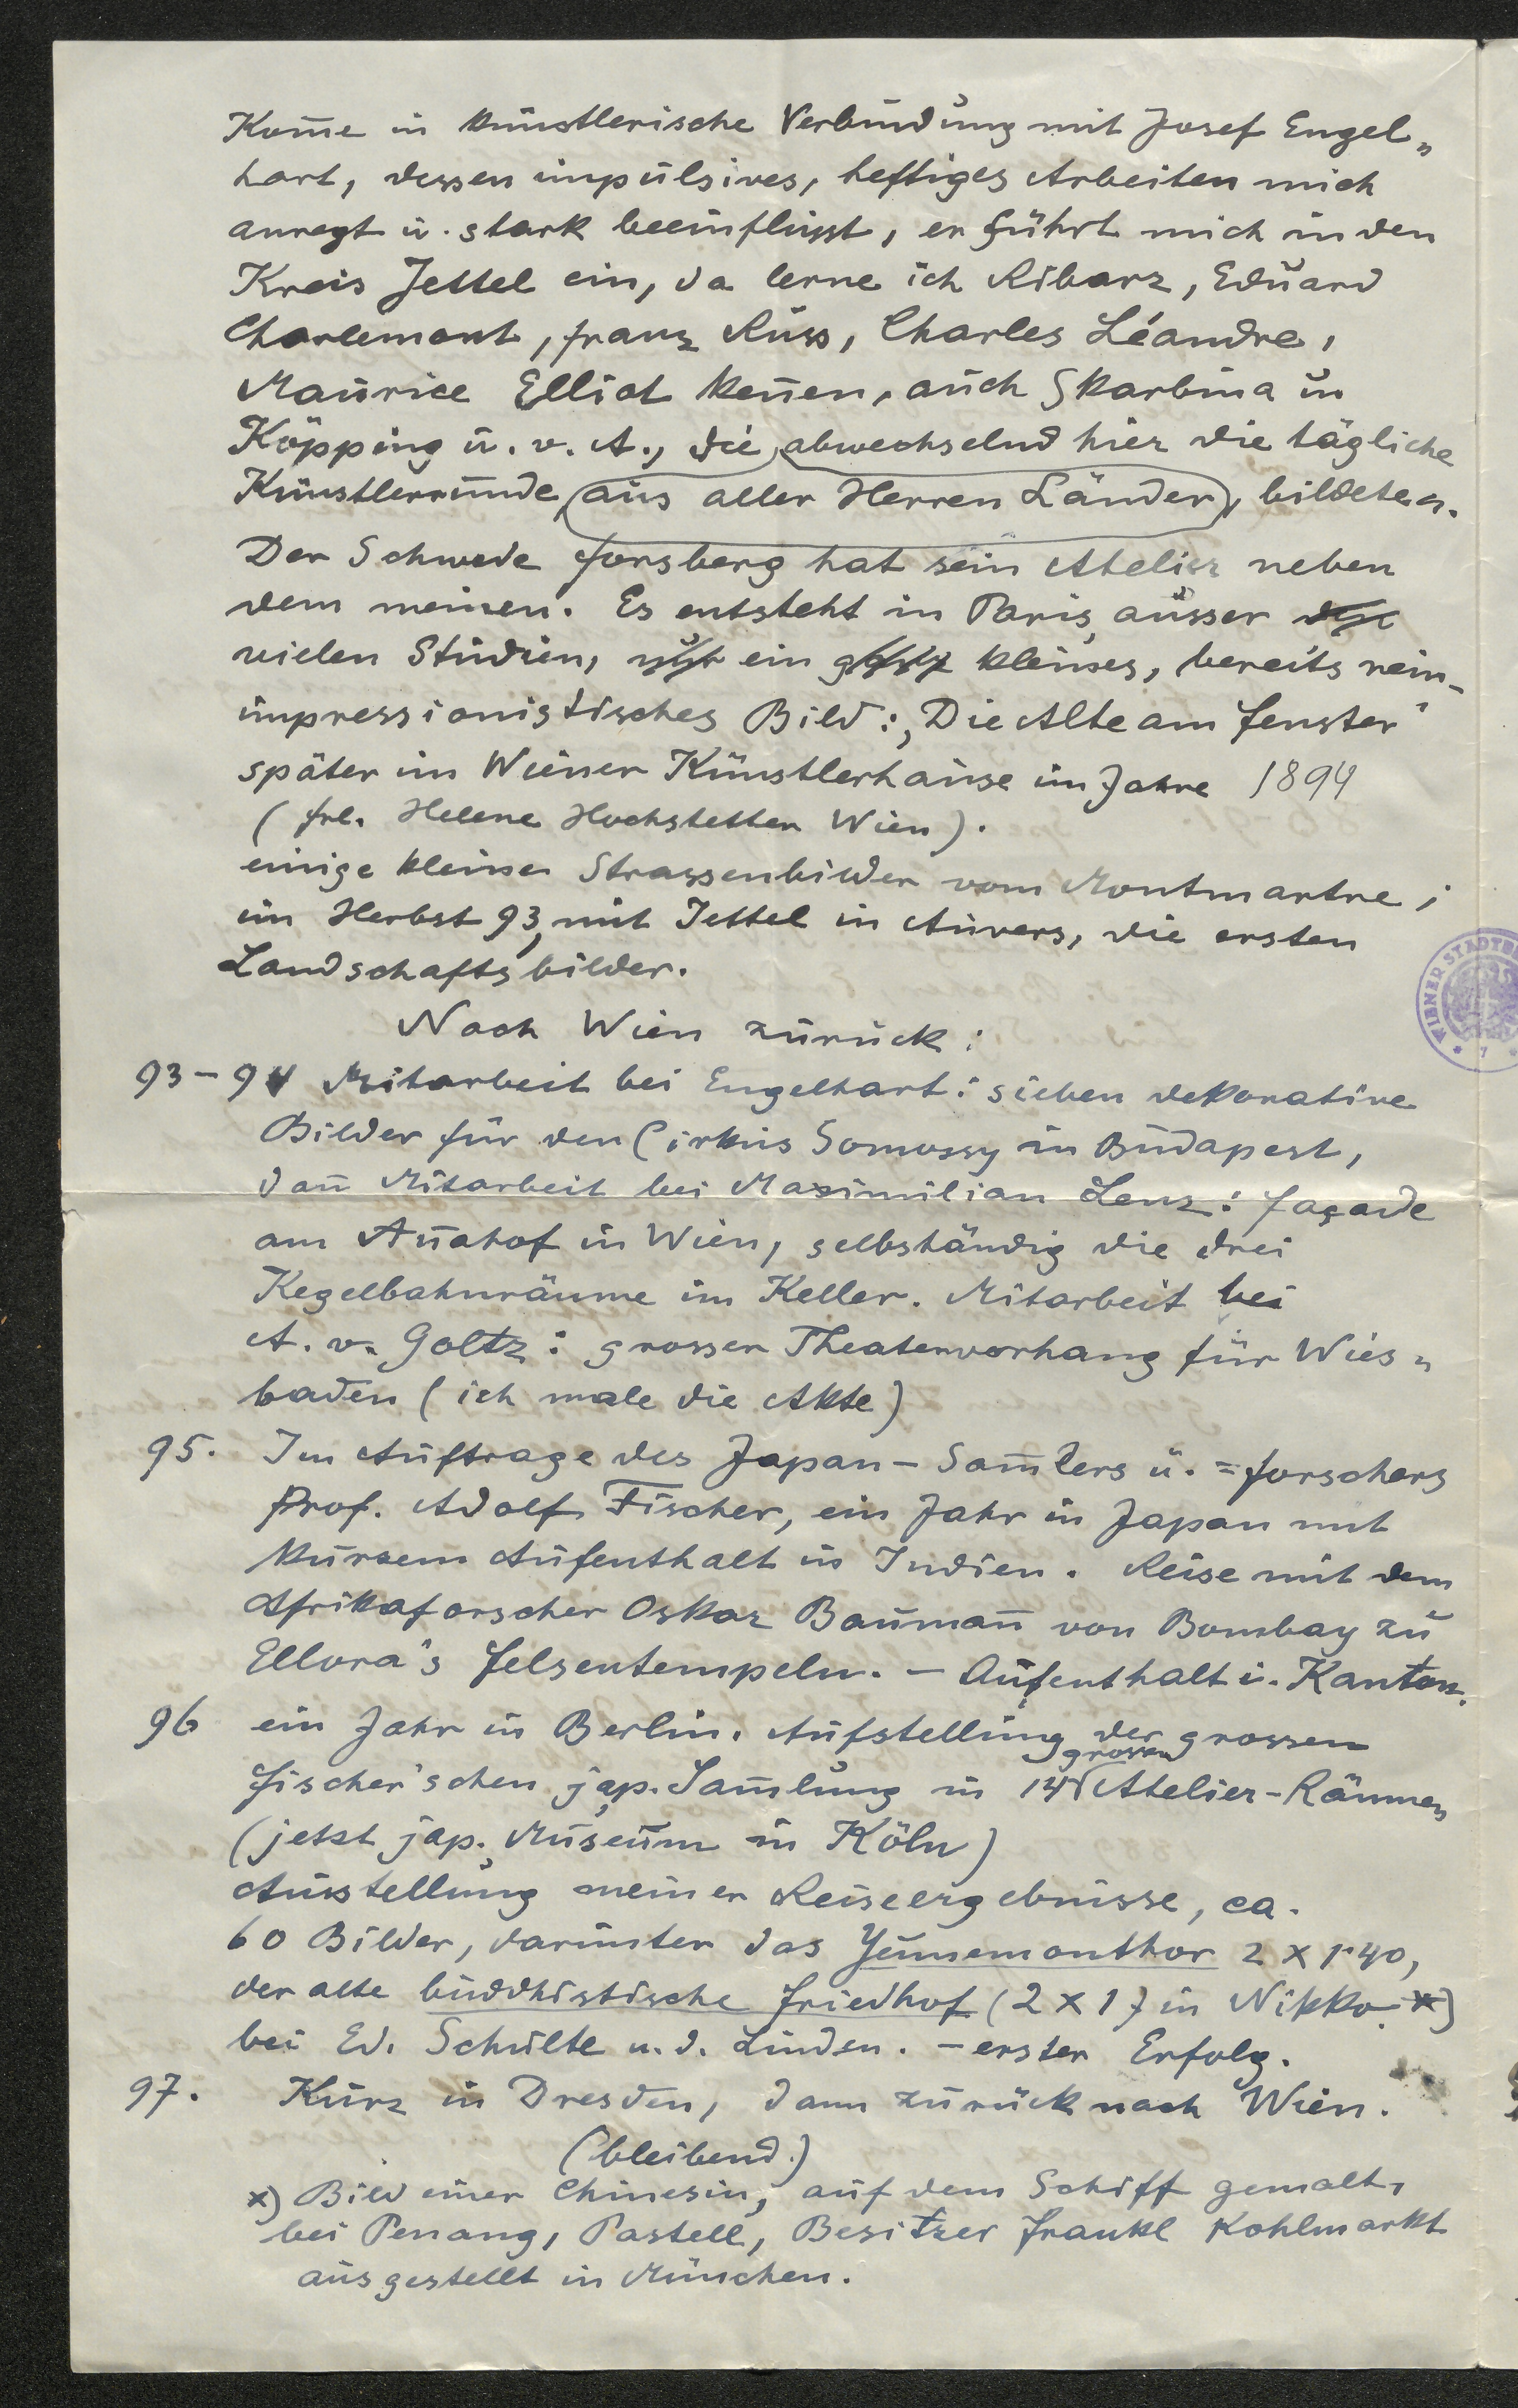 Kom̅e in künstlerische Verbindung mit Josef Engel„
hart, dessen impulsives, heftiges Arbeiten mich
anregt u. stark beeinflusst, er führt mich in den
Kreis Jettel ein, da lerne ich Ribarz, Eduard
Charlemont, Franz Russ, Charles Léandre,
Maurice Elliot ken̅en, auch Skarbina u
Köpping u. v. A., die abwechselnd hier die tägliche
Künstlerrunde (aus aller Herren Länder), bildeten.
Der Schwede Forsberg hat sein Atelier neben
dem meinen. Es entsteht in Paris, ausser
vielen Studien, ein kleines, bereits rein-
impressionistisches Bild: „Die Alte am Fenster"
später im Wiener Künstlerhause im Jahre 1894
(Frl. Helene Hochstetter Wien).
einige kleine Strassenbilder vom Montmartre;
im Herbst 93, mit Jettel in Auvers, die ersten
Landschaftsbilder.
Nach Wien zurück:
93-94 Mitarbeit bei Engelhart: sieben dekorative
Bilder für den Cirkus Somossy in Budapest,
dan̅ Mitarbeit bei Maximilian Lenz: Façade
am An̅ahof in Wien, selbständig die drei
Kegelbahnräume im Keller. Mitarbeit bei
A. v. Goltz: grosser Theatervorhang für Wies„
baden (ich male die Akte)
95. Im Auftrage des Japan-Sam̅lers u. =forschers
Prof. Adolf Fischer, ein Jahr in Japan mit
kurzem Aufenthalt in Indien. Reise mit dem
Afrikaforscher Oskar Bauman̅ von Bombay zu
Ellora's Felsentempeln. - Aufenthalt i. Kanton.
96 ein Jahr in Berlin. Aufstellung der grossen
Fischer'schen jap. Sam̅lung in 14 grossen Atelier-Räumen
(jetzt jap. Museum in Köln)
Ausstellung meiner Reiseergebnisse, ca.
60 Bilder, darunter das Yeumemonthor 2 x 1·40,
der alte buddhistische Friedhof (2 x 1) in Nikko. x)
bei Ed. Schulte u. d. Linden. - erster Erfolg.
97. Kurz in Dresden, dann zurück nach Wien.
(bleibend.)
x) Bild einer Chinesin, auf dem Schiff gemalt,
bei Penang, Pastell, Besitzer Frankl Kohlmarkt
ausgestellt in München.